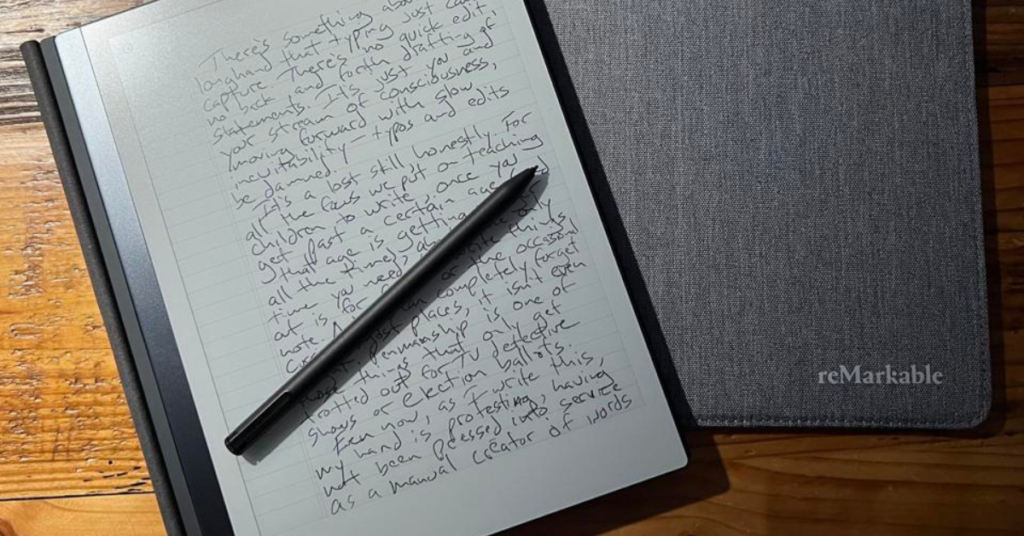 There's something about
longhand that typing just can't
capture. There's no quick edit,
no back and forth drafting of
statements. It's just you and
your stream of consciousness,
moving forward with slow
inevitability — typos and edits
be damned.
It's a lost still honestly. For
all the favs we put on teaching
children to write, once you
get past a certain age
that age is getting
all the time), write things
time you need
out is for or the occasional
note. completely forget
just places, it isn't even
penmanship is one of
things that only get
trotted out for TV detective
shows or election ballots.
Even now, as I write this,
my hand is protesting, having
not been pressed into service
as a manual creator of words
reMarkable